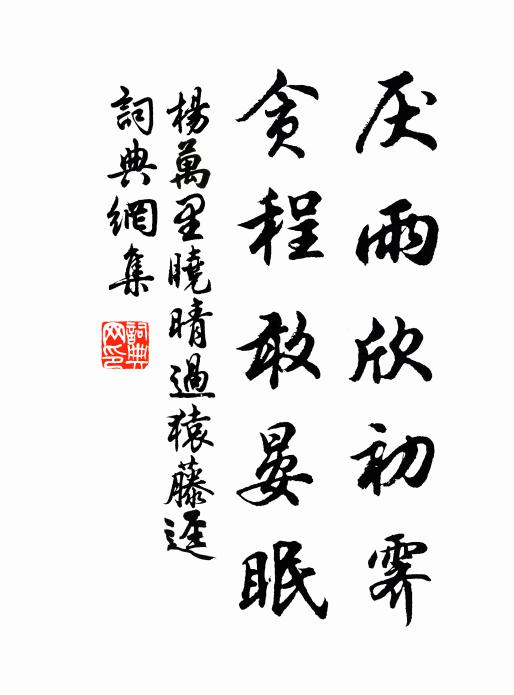 厌雨欣初霁
貪程敢晏眠
楊萬里曉晴過猿藤逕
詞典網集
詞典网印